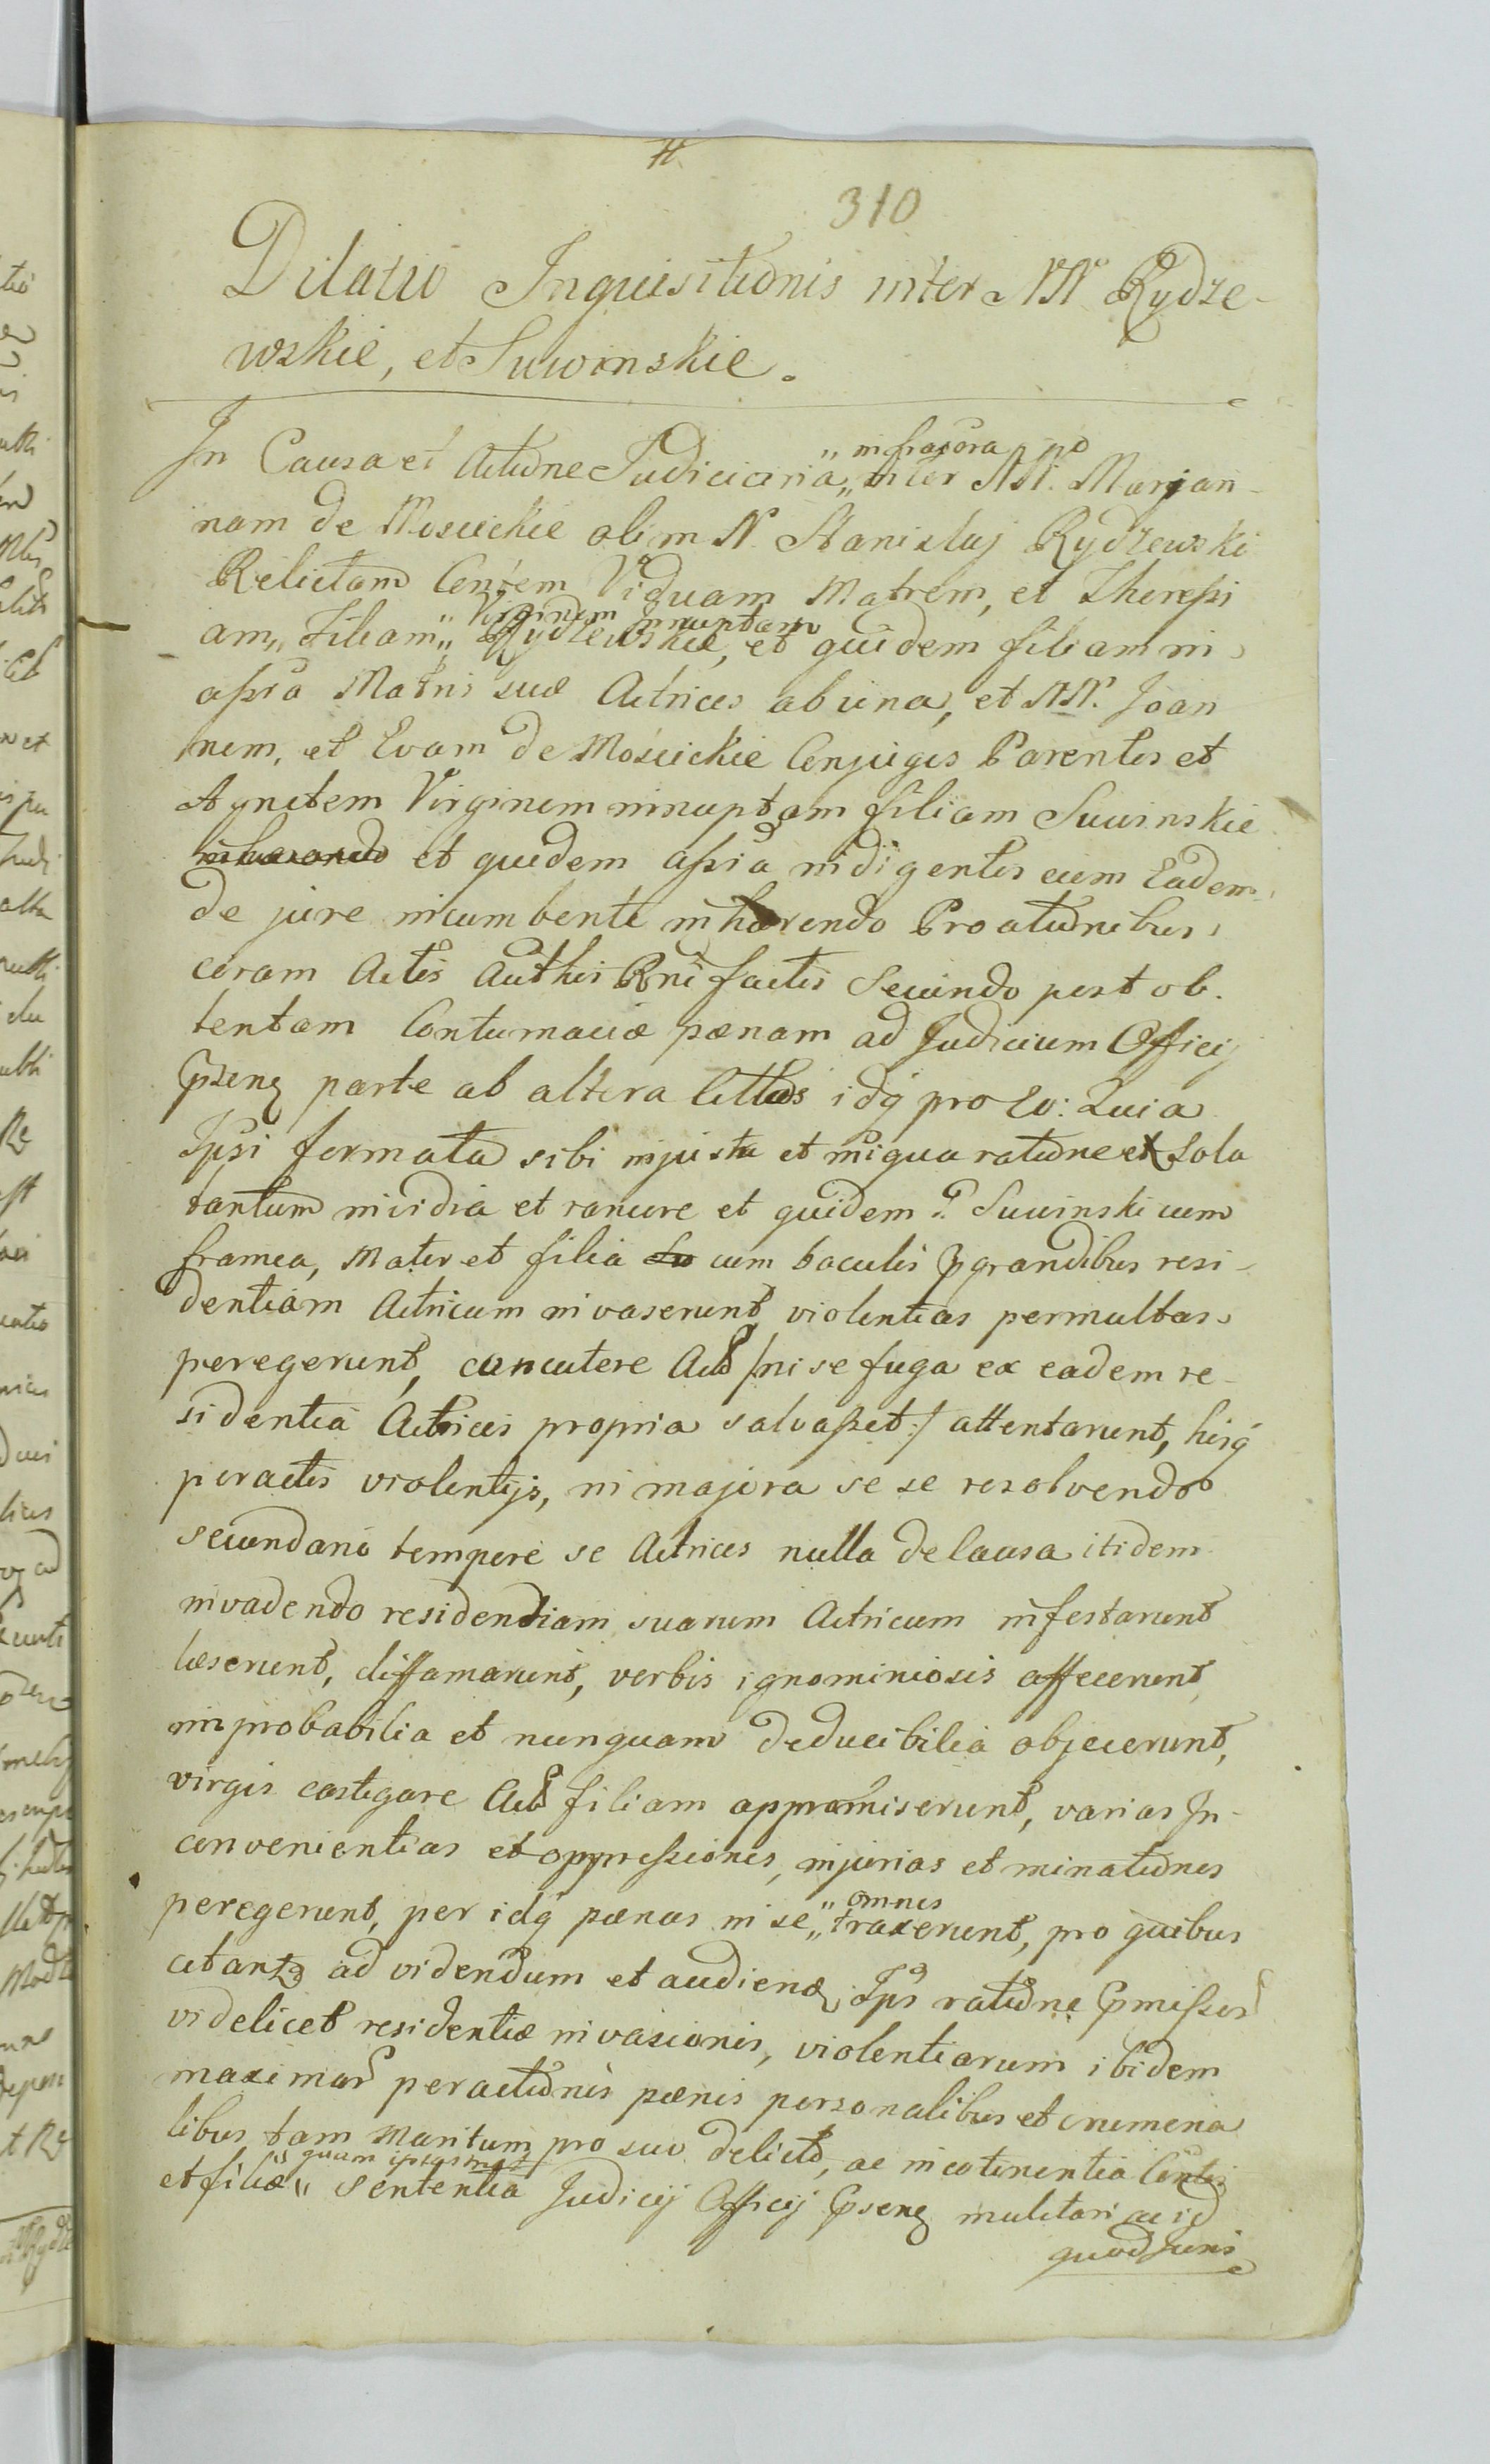 310
Dilatio Inquisitionis inter NN Rydze-
wskie, et Suwinskie.
In Causa et Actione Judiciaria „ infrascra ppo „ inter NN. Marjan-
nam de Moscickie olim N. Stanislaj Rydzewski
Relictam Conjem Viduam Matrem, et Theressi
am „ Filiam „ Virginem Innuptam Rydzewskie, et quidem filiam in
assia Matris suæ Actrices ab una, et NN. Joan
nem, et Evam de Mościckie Conjuges Parentes et
Agnetem Virginem innuptam filiam Suwinskie
et quidem assia indigentes eum Eadem
de jure incumbente inhærendo Proationibus
coram Actis Authcis Rni factis Secundo post ob-
tentam Contumaciæ pænam ad Judicium Officij
Gpseng parte ab altera Citthos idq pro eo: Quia
Ipsi formata sibi injusta et iniqua ratione et Sola
tantum invidia et rancore et quidem P. Suwinski cum
framea, Mater et filia cum baculis pgrandibus resi-
dentiam Actricum invaserunt violentias permultas
peregerunt, concutere Act /ni se fuga ex eadem re-
sidentia Actrices propria salvasset:/ attentarunt, hisq
peractis violentijs, in majora se se resolvendo
secundario tempore se Actrices nulla de Causa itidem
invadendo residentiam suarum Actricum infestarunt
læserunt, diffamarunt, verbis ignominiosis affecerunt,
improbabilia et nunquam deducibilia objecerunt,
virgis castigare Act filiam appromiserunt, varias In-
convenientias et oppressiones, injurias et minationes
peregerunt, per idq pænas in se „ omnes „ traxerunt, pro quibus
citantq ad videndum et audiend, Ips ratione Gpmissor
videlicet residentiæ invasionis, violentiarum ibidem
maximar peractionis pænis personalibus et crimina
libus tam Maritum pro suo delicto, ac in cotinentia Contis
et filiæ „ quam ipsasmet sententia Judicij Officij Gpseng mulctari ac id
quod Juris